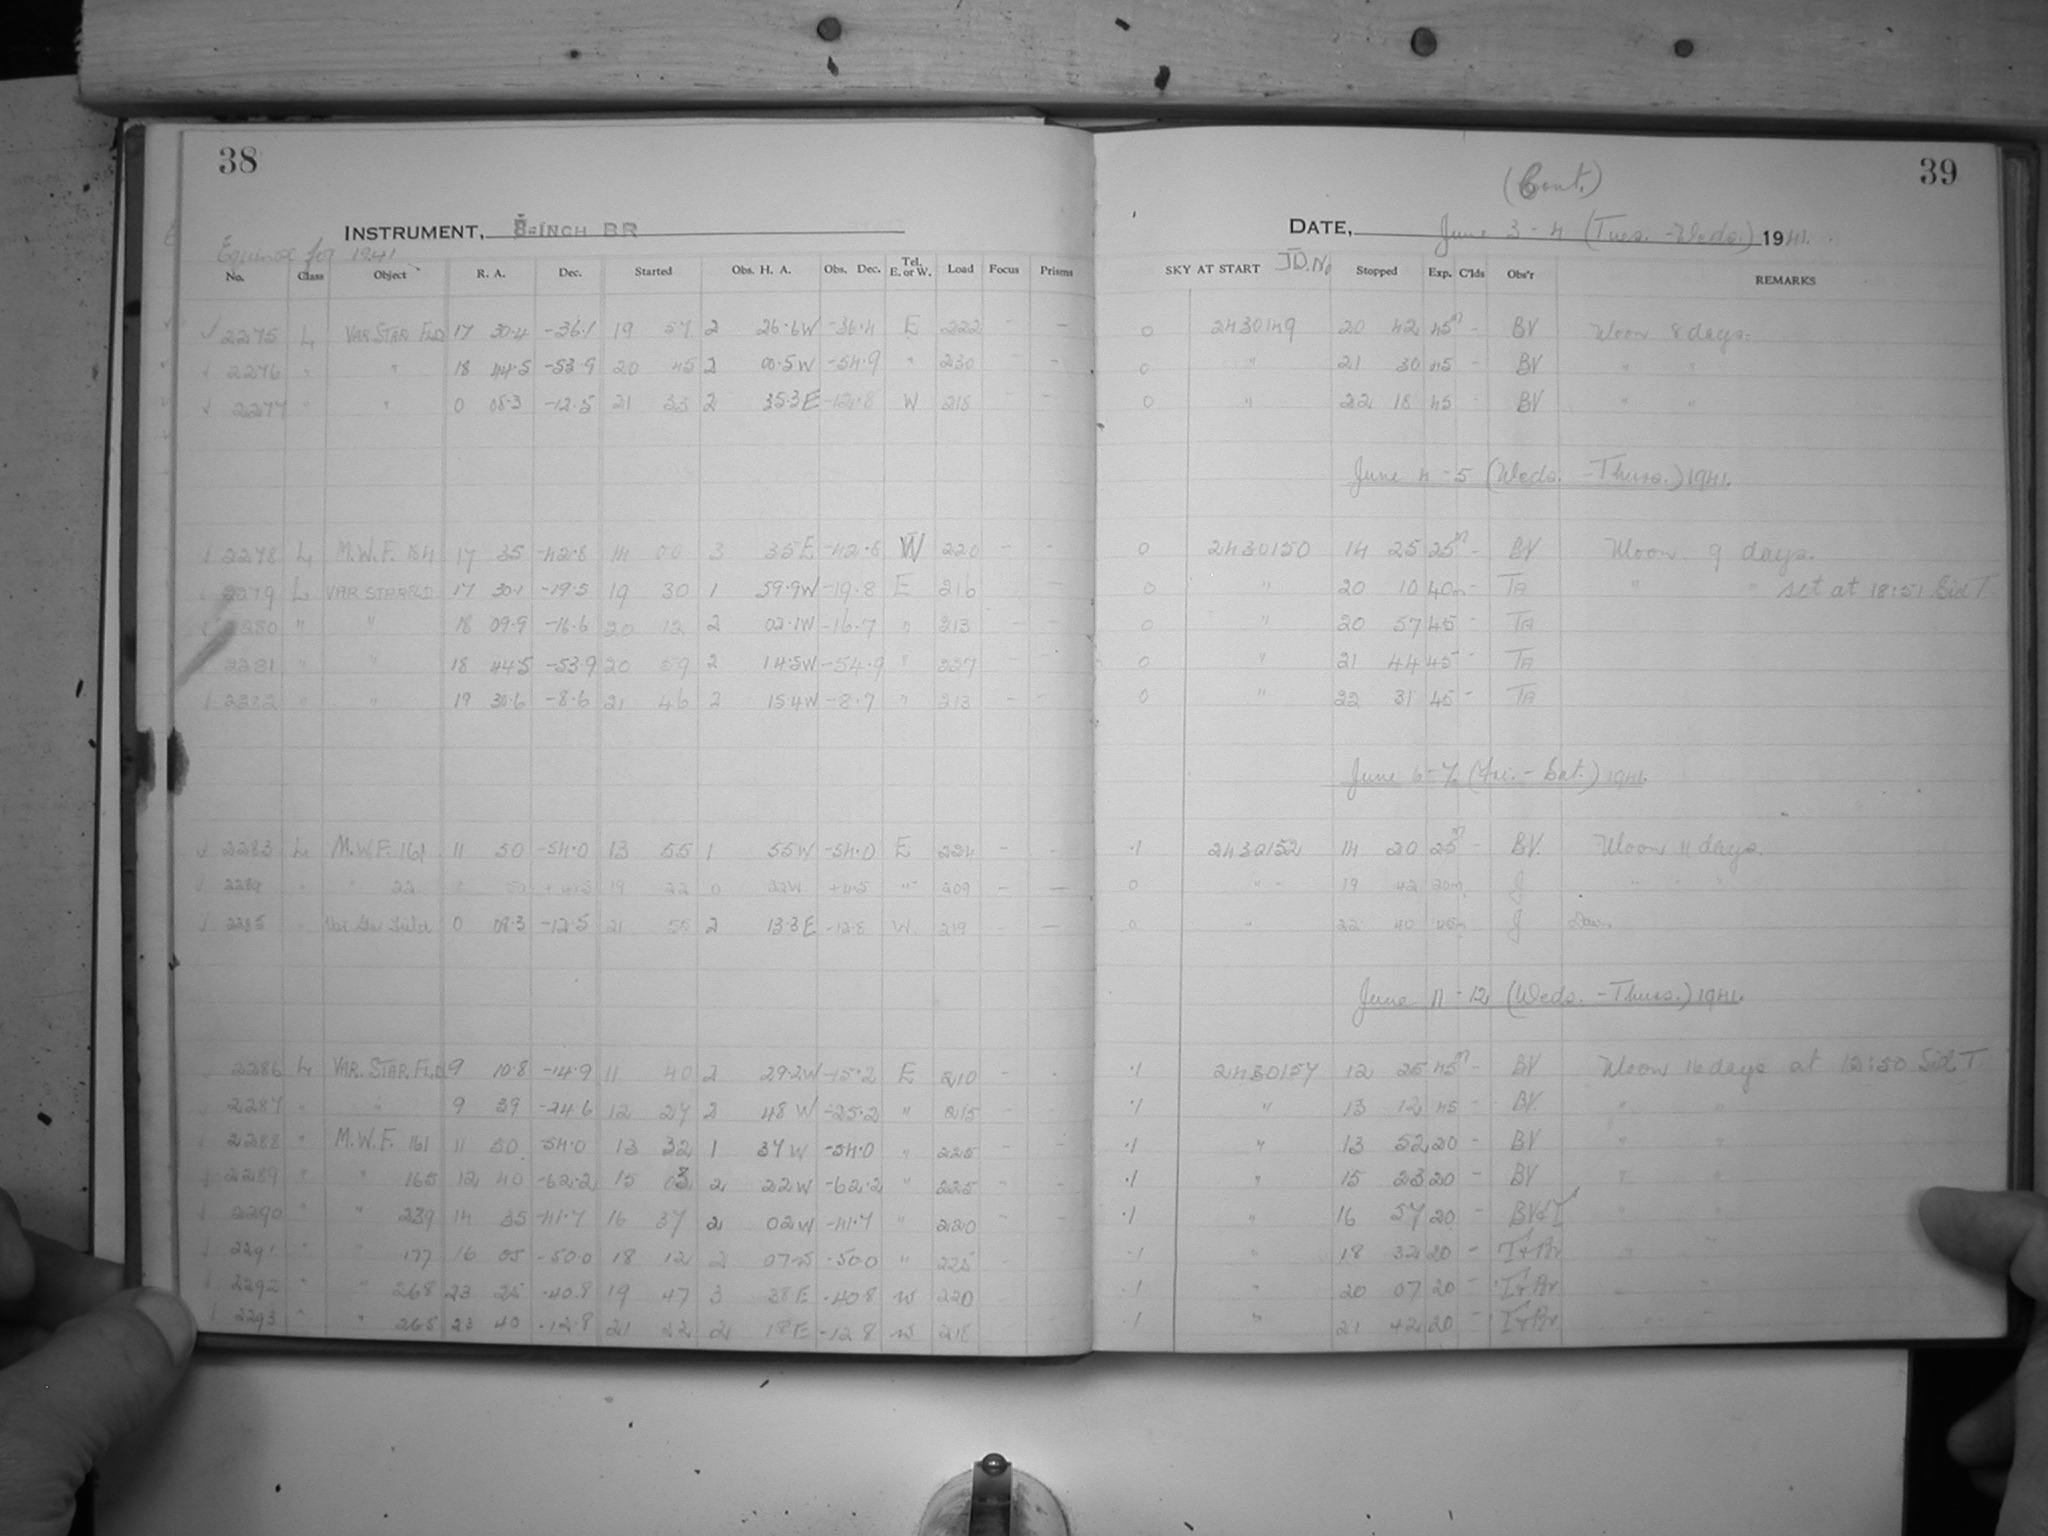 38
INSTRUMENT, 8-INCH BR
Equinox for 1941
No. Class Object R. A. Dec. Started Obs. H. A. Obs. Dec. Tel. E. or W. Load Focus Prisms
2275 L VAR STAR FLD 17 30.4 -36.1 19 57 2 26.6W -36.4 E 222 - -
2276 " " 18 44.5 -53.9 20 45 2 00.5W -54.9 " 230 - -
2277 " " 0 08.3 -12.5 21 33 2 35.3E -12.8 W 218 - -
2278 L M.W.F. 184 17 35 -42.8 14 00 3 35E -42.8 W 220 - -
2279 L VAR STAR FLD. 17 30.1 -19.5 19 30 1 59.9W -19.8 E 216 -
2280 " " 18 09.9 -16.6 20 12 2 02.1W -16.7 " 213
2281 " " 18 44.5 -53.9 20 59 2 14.5W -54.9 " 227
2282 " " 19 30.6 -8.6 21 46 2 15.4W -8.7 " 213 - -
2283 L M.W.F. 161 11 50 -54.0 13 55 1 55W -54.0 E 224 - -
2284 " " 22 19 22 0 22W +11.5 " 209 - -
2285 " Var Star Field 0 08.3 -12.5 21 55 2 13.3E -12.8 W. 219 - -
2286 L VAR. STAR. FLD 9 10.8 -14.9 11 40 2 29.2W -15.2 E 210 - -
2287 " " 9 39 -24.6 12 27 2 48W -25.2 " 215 - -
2288 " M.W.F. 161 11 50 -54.0 13 32 1 37W -54.0 " 225 - -
2289 " " 165 12 40 -62.2 15 03 2 22W -62.2 " 225 - -
2290 " " 239 14 35 -41.7 16 37 2 02W -41.7 " 220 - -
2291 " " 177 16 05 -50.0 18 12 2 07W -50.0 " 225 -
2292 " " 268 23 25 -40.8 19 47 3 38E -40.8 W 220
2293 " 265 23 40 -12.8 21 22 2 18E -12.8 W 218
39
(Cont.)
DATE, June 3-4 (Tues.-Weds.) 1941.
SKY AT START JD. No Stopped Exp. C'lds Obs'r REMARKS
0 2430149 20 42 45m - BV Moon 8 days.
0 " 21 30 45 - BV " "
0 " 22 18 45 - BV " "
June 4-5 (Weds.-Thurs.) 1941.
0 2430150 14 25 25m - BV Moon 9 days.
0 " 20 10 40m - TA " " set at 18:51 Sid T.
0 " 20 57 45 - TA
0 " 21 44 45 - TA
0 " 22 31 45 - TA
June 6-7 (Fri.-Sat.) 1941.
.1 2430152 14 20 25m - BV. Moon 11 days.
0 " 19 42 20m J " " "
0 " 22 40 45m J Dawn
June 11-12 (Weds.-Thurs.) 1941.
.1 2430157 12 25 45m - BV Moon 16 days at 12:50 Sid T.
.1 " 13 12 45 - BV " "
.1 " 13 52 20 - BV " "
.1 " 15 23 20 - BV " "
.1 " 16 57 20 - BV&T " "
.1 " 18 32 20 - T+Br " "
.1 " 20 07 20 - T+Br " "
.1 " 21 42 20 - T+Br " "